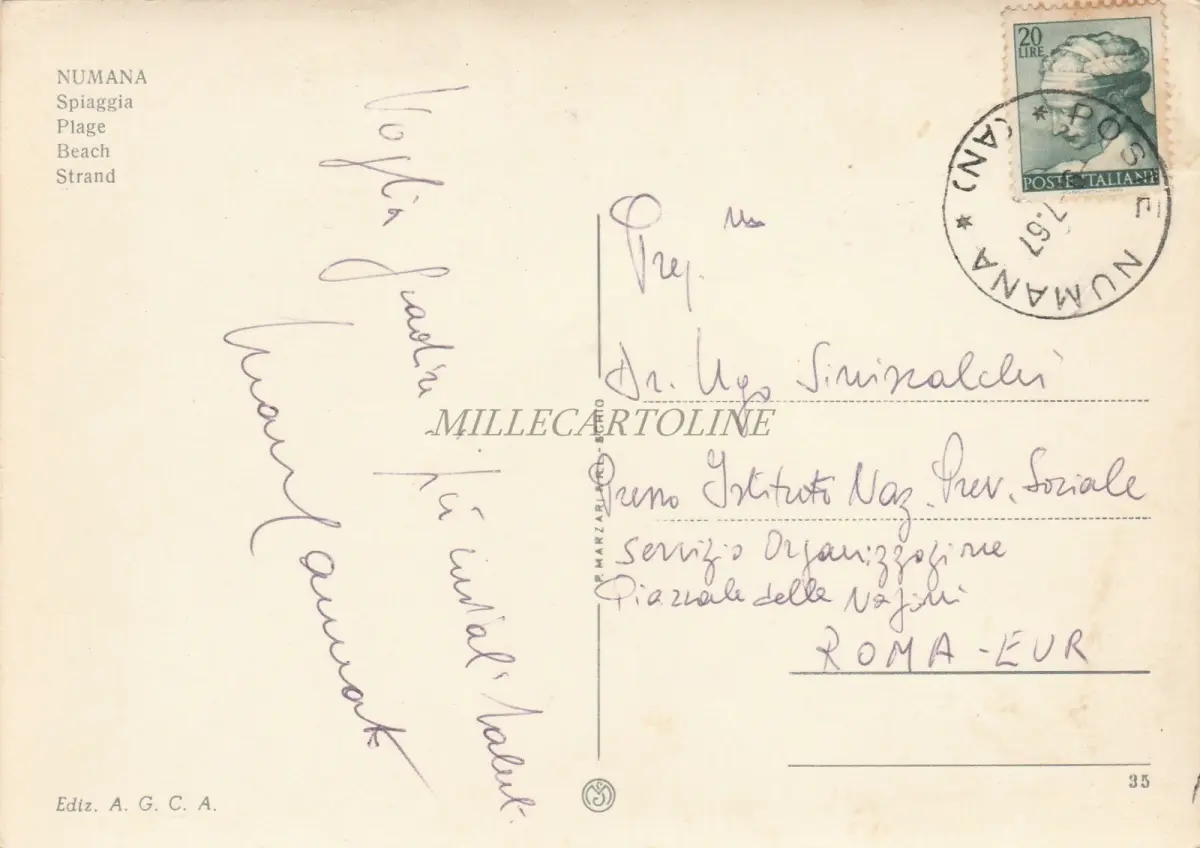 NUMANA
Spiaggia
Plage
Beach
Strand
20
LIRE
POSTE ITALIANE
POSTE NUMANA (AN)
7.67
Voglia gradire
i più cordiali saluti.
Preg.
Dr. Ugo Siniscalchi
Presso Istituto Naz. Prev. Sociale
Servizio Organizzazione
Piazzale delle Nazioni
ROMA - EUR
MILLECARTOLINE
P. MARZARI S.R.L. - SCHIO
Ediz. A. G. C. A.
35